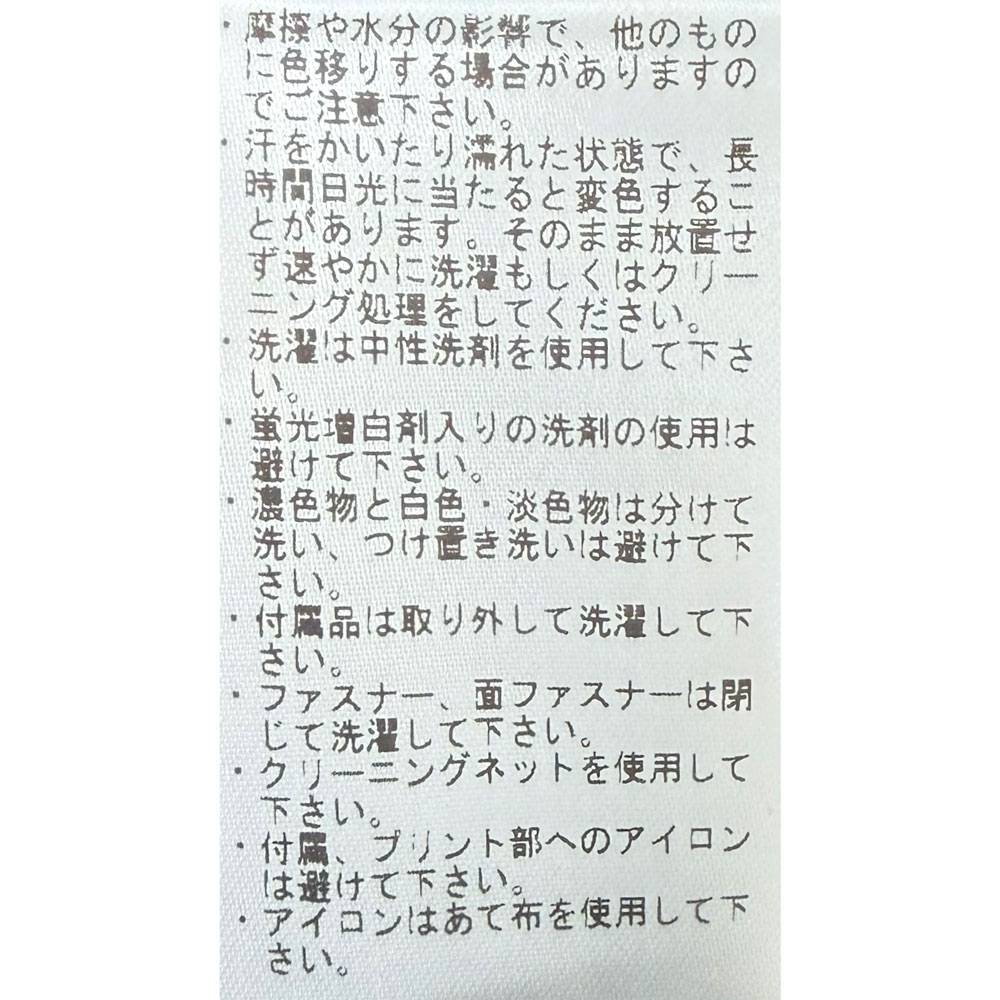 ・摩擦や水分の影響で、他のもの
に色移りする場合がありますの
でご注意下さい。
・汗をかいたり濡れた状態で、長
時間日光に当たると変色するこ
とがあります。そのまま放置せ
ず速やかに洗濯もしくはクリー
ニング処理をしてください。
・洗濯は中性洗剤を使用して下さ
い。
・蛍光増白剤入りの洗剤の使用は
避けて下さい。
・濃色物と白色・淡色物は分けて
洗い、つけ置き洗いは避けて下
さい。
・付属品は取り外して洗濯して下
さい。
・ファスナー、面ファスナーは閉
じて洗濯して下さい。
・クリーニングネットを使用して
下さい。
・付属、プリント部へのアイロン
は避けて下さい。
・アイロンはあて布を使用して下
さい。